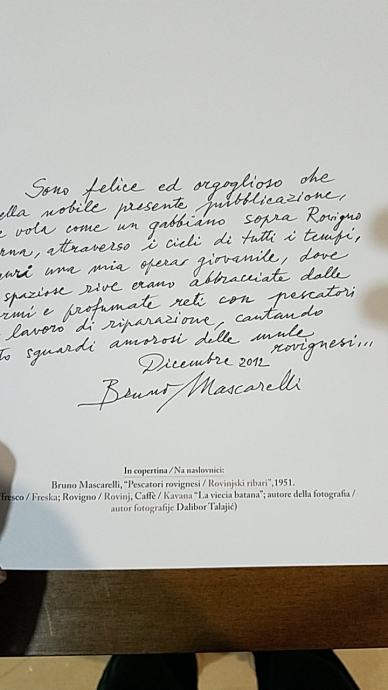 Sono felice ed orgoglioso che
ella nobile presente pubblicazione,
e vola come un gabbiano sopra Rovigno
rna, attraverso i cieli di tutti i tempi,
guri una mia opera giovanile, dove
spaziose rive erano abbracciate dalle
rmi e profumate reti con pescatori
lavoro di riparazione, cantando
to sguardi amorosi delle mule
rovignesi...
Dicembre 2012
Bruno Mascarelli
In copertina / Na naslovnici:
Bruno Mascarelli, "Pescatori rovignesi / Rovinjski ribari", 1951.
fresco / Freska; Rovigno / Rovinj, Caffè / Kavana "La viecia batana"; autore della fotografia /
autor fotografije Dalibor Talajić)